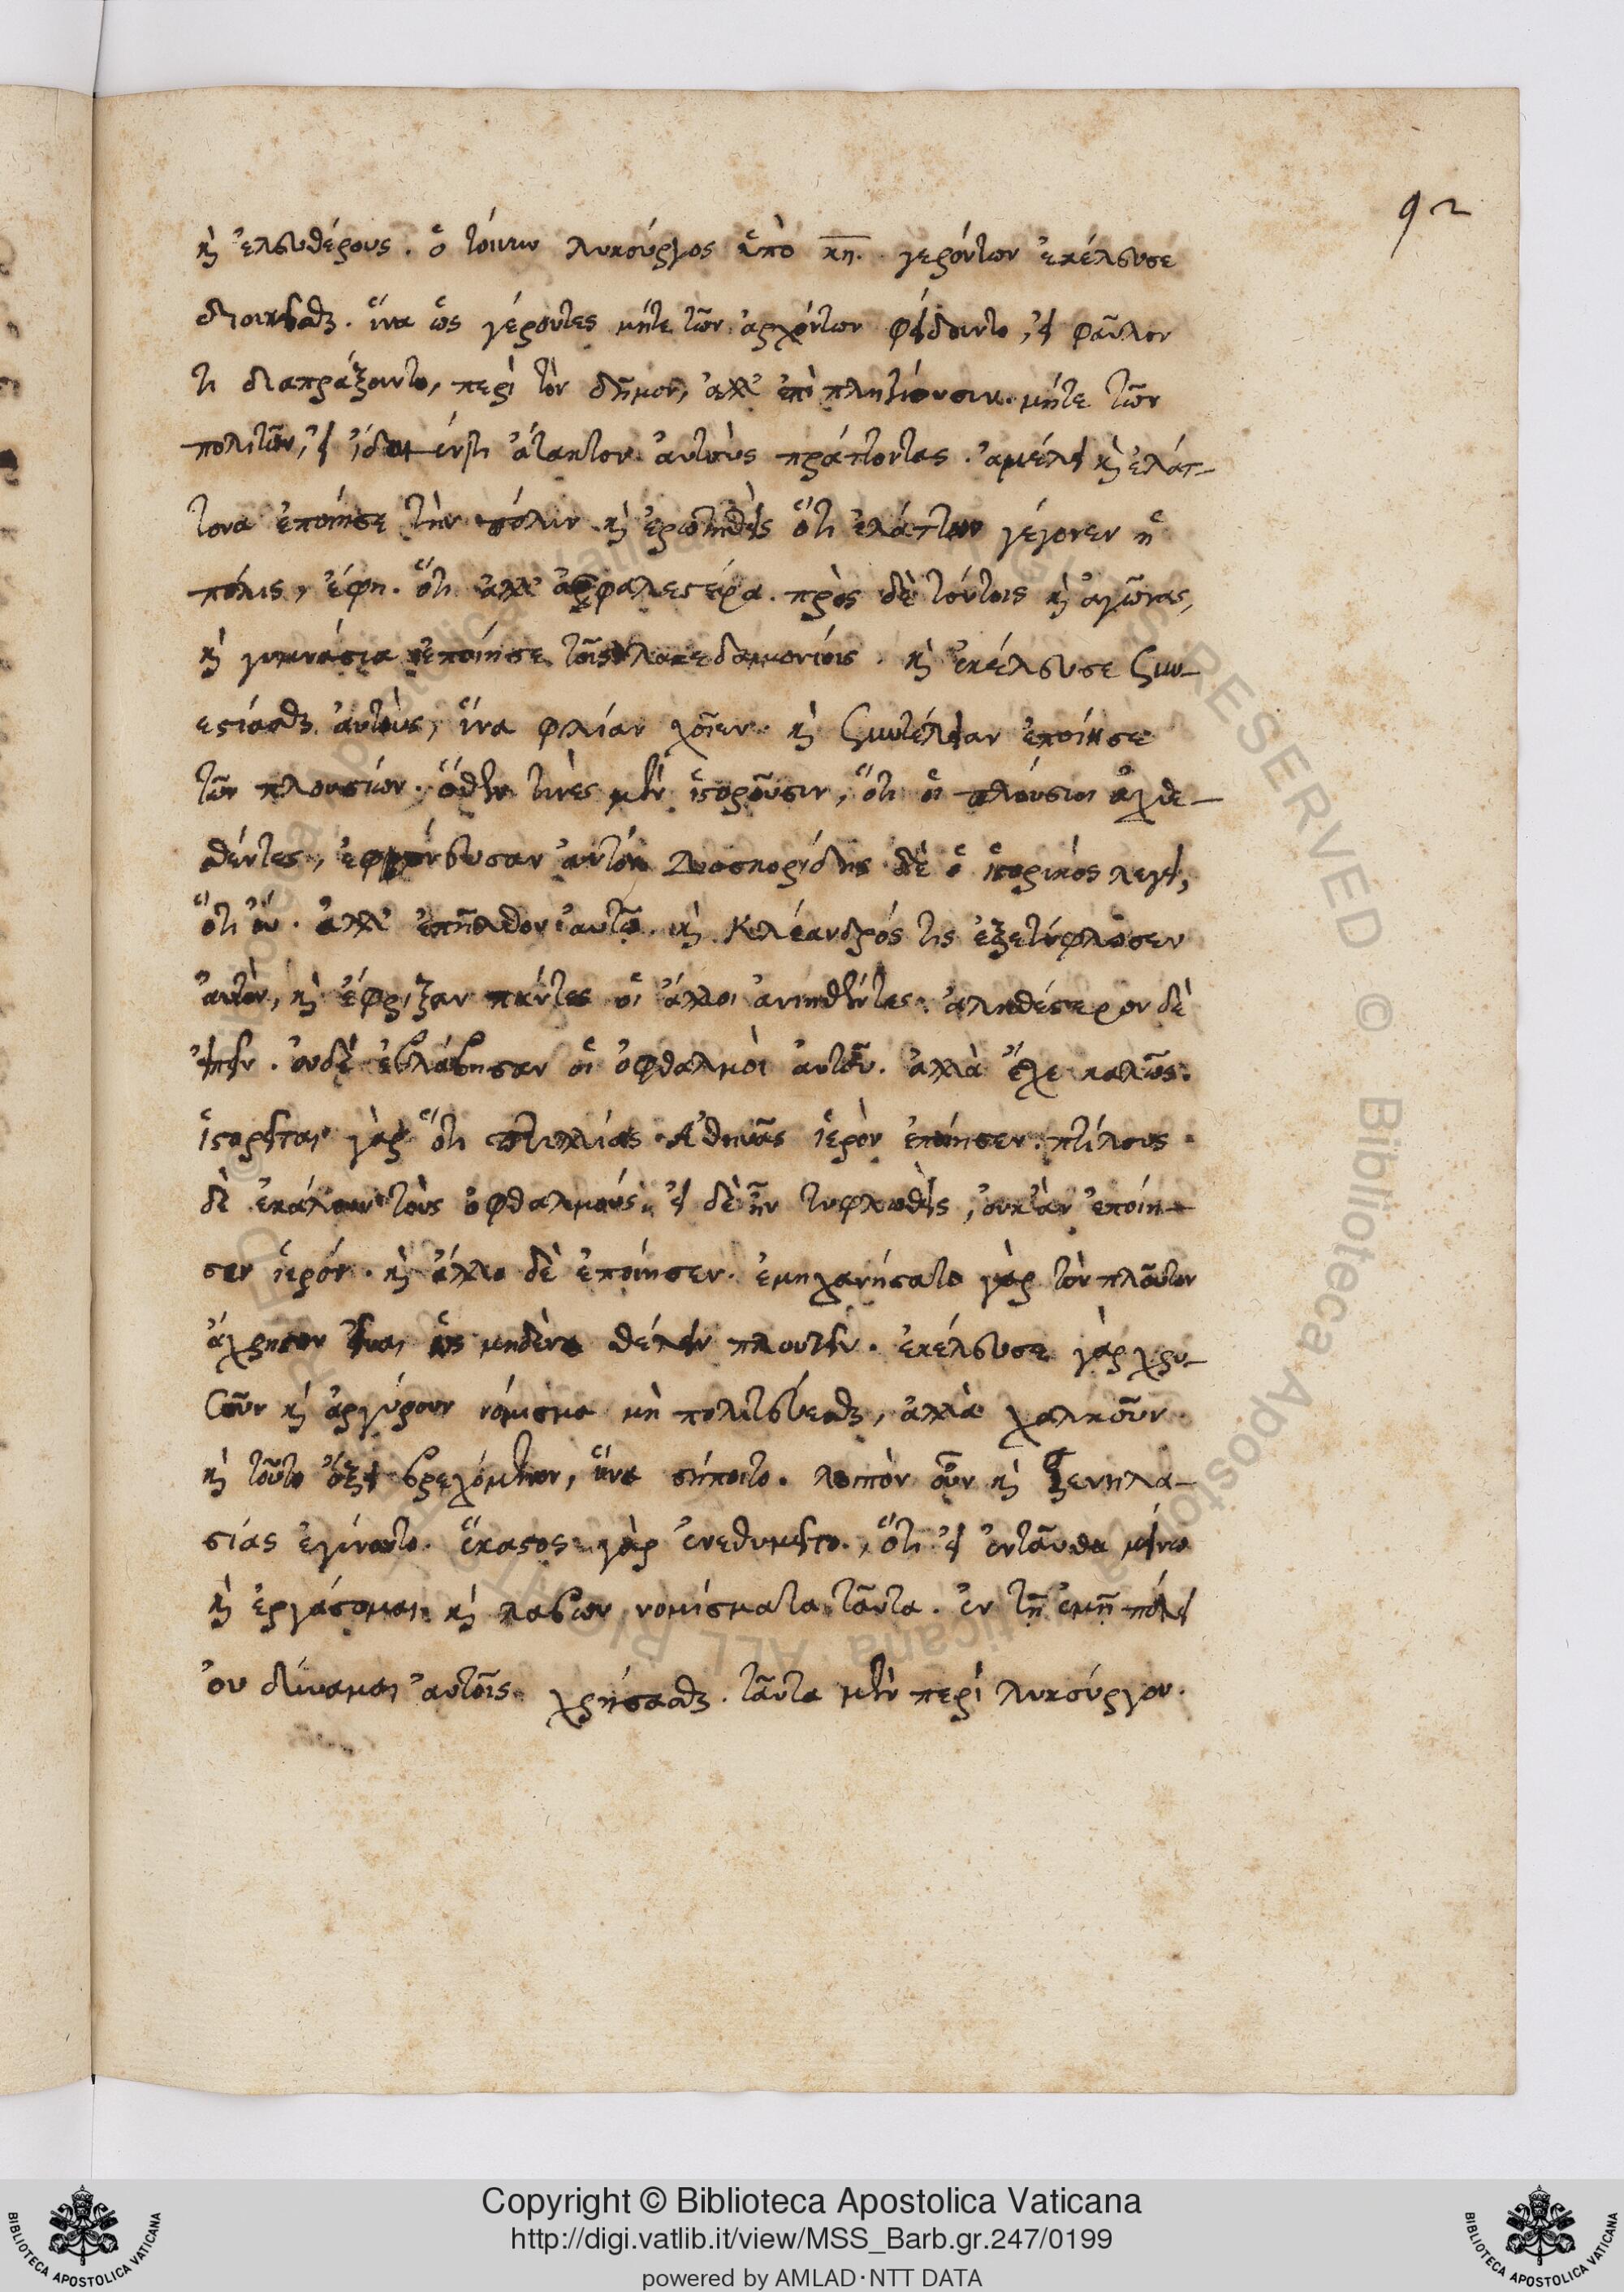 92
καὶ ἐλευθέρους. ὁ τοίνυν λυκούργος ὑπὸ κη. γερόντων ἐκέλευσε
διοικεῖσθαι. ἵνα ὡς γέροντες μήτε τῶν ἀρχόντων φείδοιντο, εἰ φαῦλον
τι διαπράξοιντο, περὶ τὸν δῆμον, ἀλλ' ἐπιπλήττουσιν. μήτε τῶν
πολιτῶν, εἰ ἴδοιέν τι ἄτακτον αὐτοὺς πράττοντας. ἀμέλει καὶ ἐλάτ-
τονα ἐποίησε τὴν πόλιν. καὶ ἐρωτηθεὶς ὅτι ἐλάττων γέγονεν ἡ
πόλις, ἔφη. ὅτι ἀλλ' ἀσφαλεστέρα. πρὸς δὲ τούτοις καὶ ἀγῶνας,
καὶ γυμνάσια ἐποίησε τοῖς λακεδαιμονίοις. καὶ ἐκέλευσε συν-
εστιᾶσθαι αὐτοὺς, ἵνα φιλίαν ἔχοιεν. καὶ συντέλειαν ἐποίησε
τῶν πλουσίων. ὅθεν τινὲς μὲν ἱστοροῦσιν, ὅτι οἱ πλούσιοι ἀχθε-
θέντες, ἐφόνευσαν αὐτόν, Διοσκορίδης δὲ ὁ ἱστορικός λέγει,
ὅτι οὐ. ἀλλ' ἐπῆλθον αὐτῷ. καὶ Κλέανδρός τις ἐξετύφλωσεν
αὐτὸν, καὶ ἔφριξαν πάντες οἱ ἄλλοι ἀνιαθέντες. ἀληθέστερον δὲ
εἰπεῖν. οὐδὲ ἐβλάβησαν οἱ ὀφθαλμοὶ αὐτοῦ. ἀλλὰ ἔχει καλῶς.
ἱστορεῖται γὰρ ὅτι πτιλλίας Ἀθηνᾶς ἱερὸν ἐποίησεν. πτίλους
δὲ ἐκάλουν τοὺς ὀφθαλμούς. εἰ δὲ ἦν τυφλωθεὶς, οὐκ ἂν ἐποίη-
σεν ἱερόν. καὶ ἄλλο δὲ ἐποίησεν. ἐμηχανήσατο γὰρ τὸν πλοῦτον
ἄχρηστον εἶναι ὡς μηδένα θέλειν πλουτεῖν. ἐκέλευσε γὰρ χρυ-
σοῦν καὶ ἀργύρουν νόμισμα μὴ πολιτεύεσθαι, ἀλλὰ χαλκοῦν.
καὶ τοῦτο ὄξει βρεχόμενον, ἵνα σήποιτο. λοιπὸν οὖν καὶ ξενηλα-
σίας ἐγίνοντο. ἕκαστος γὰρ ἐνεθυμεῖτο, ὅτι εἰ ἐνταῦθα μείνω
καὶ ἐργάσομαι. καὶ λαβὼν νομίσματα ταῦτα. ἐν τῇ ἐμῇ πόλει
οὐ δύναμαι αὐτοῖς χρήσασθαι. ταῦτα μὲν περὶ λυκούργου.
Copyright © Biblioteca Apostolica Vaticana
http://digi.vatlib.it/view/MSS_Barb.gr.247/0199
powered by AMLAD·NTT DATA